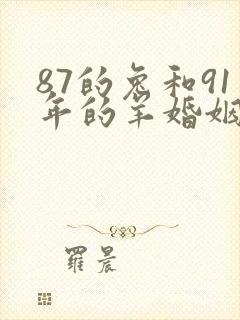 87的兔和91
年的羊婚姻
羅晨